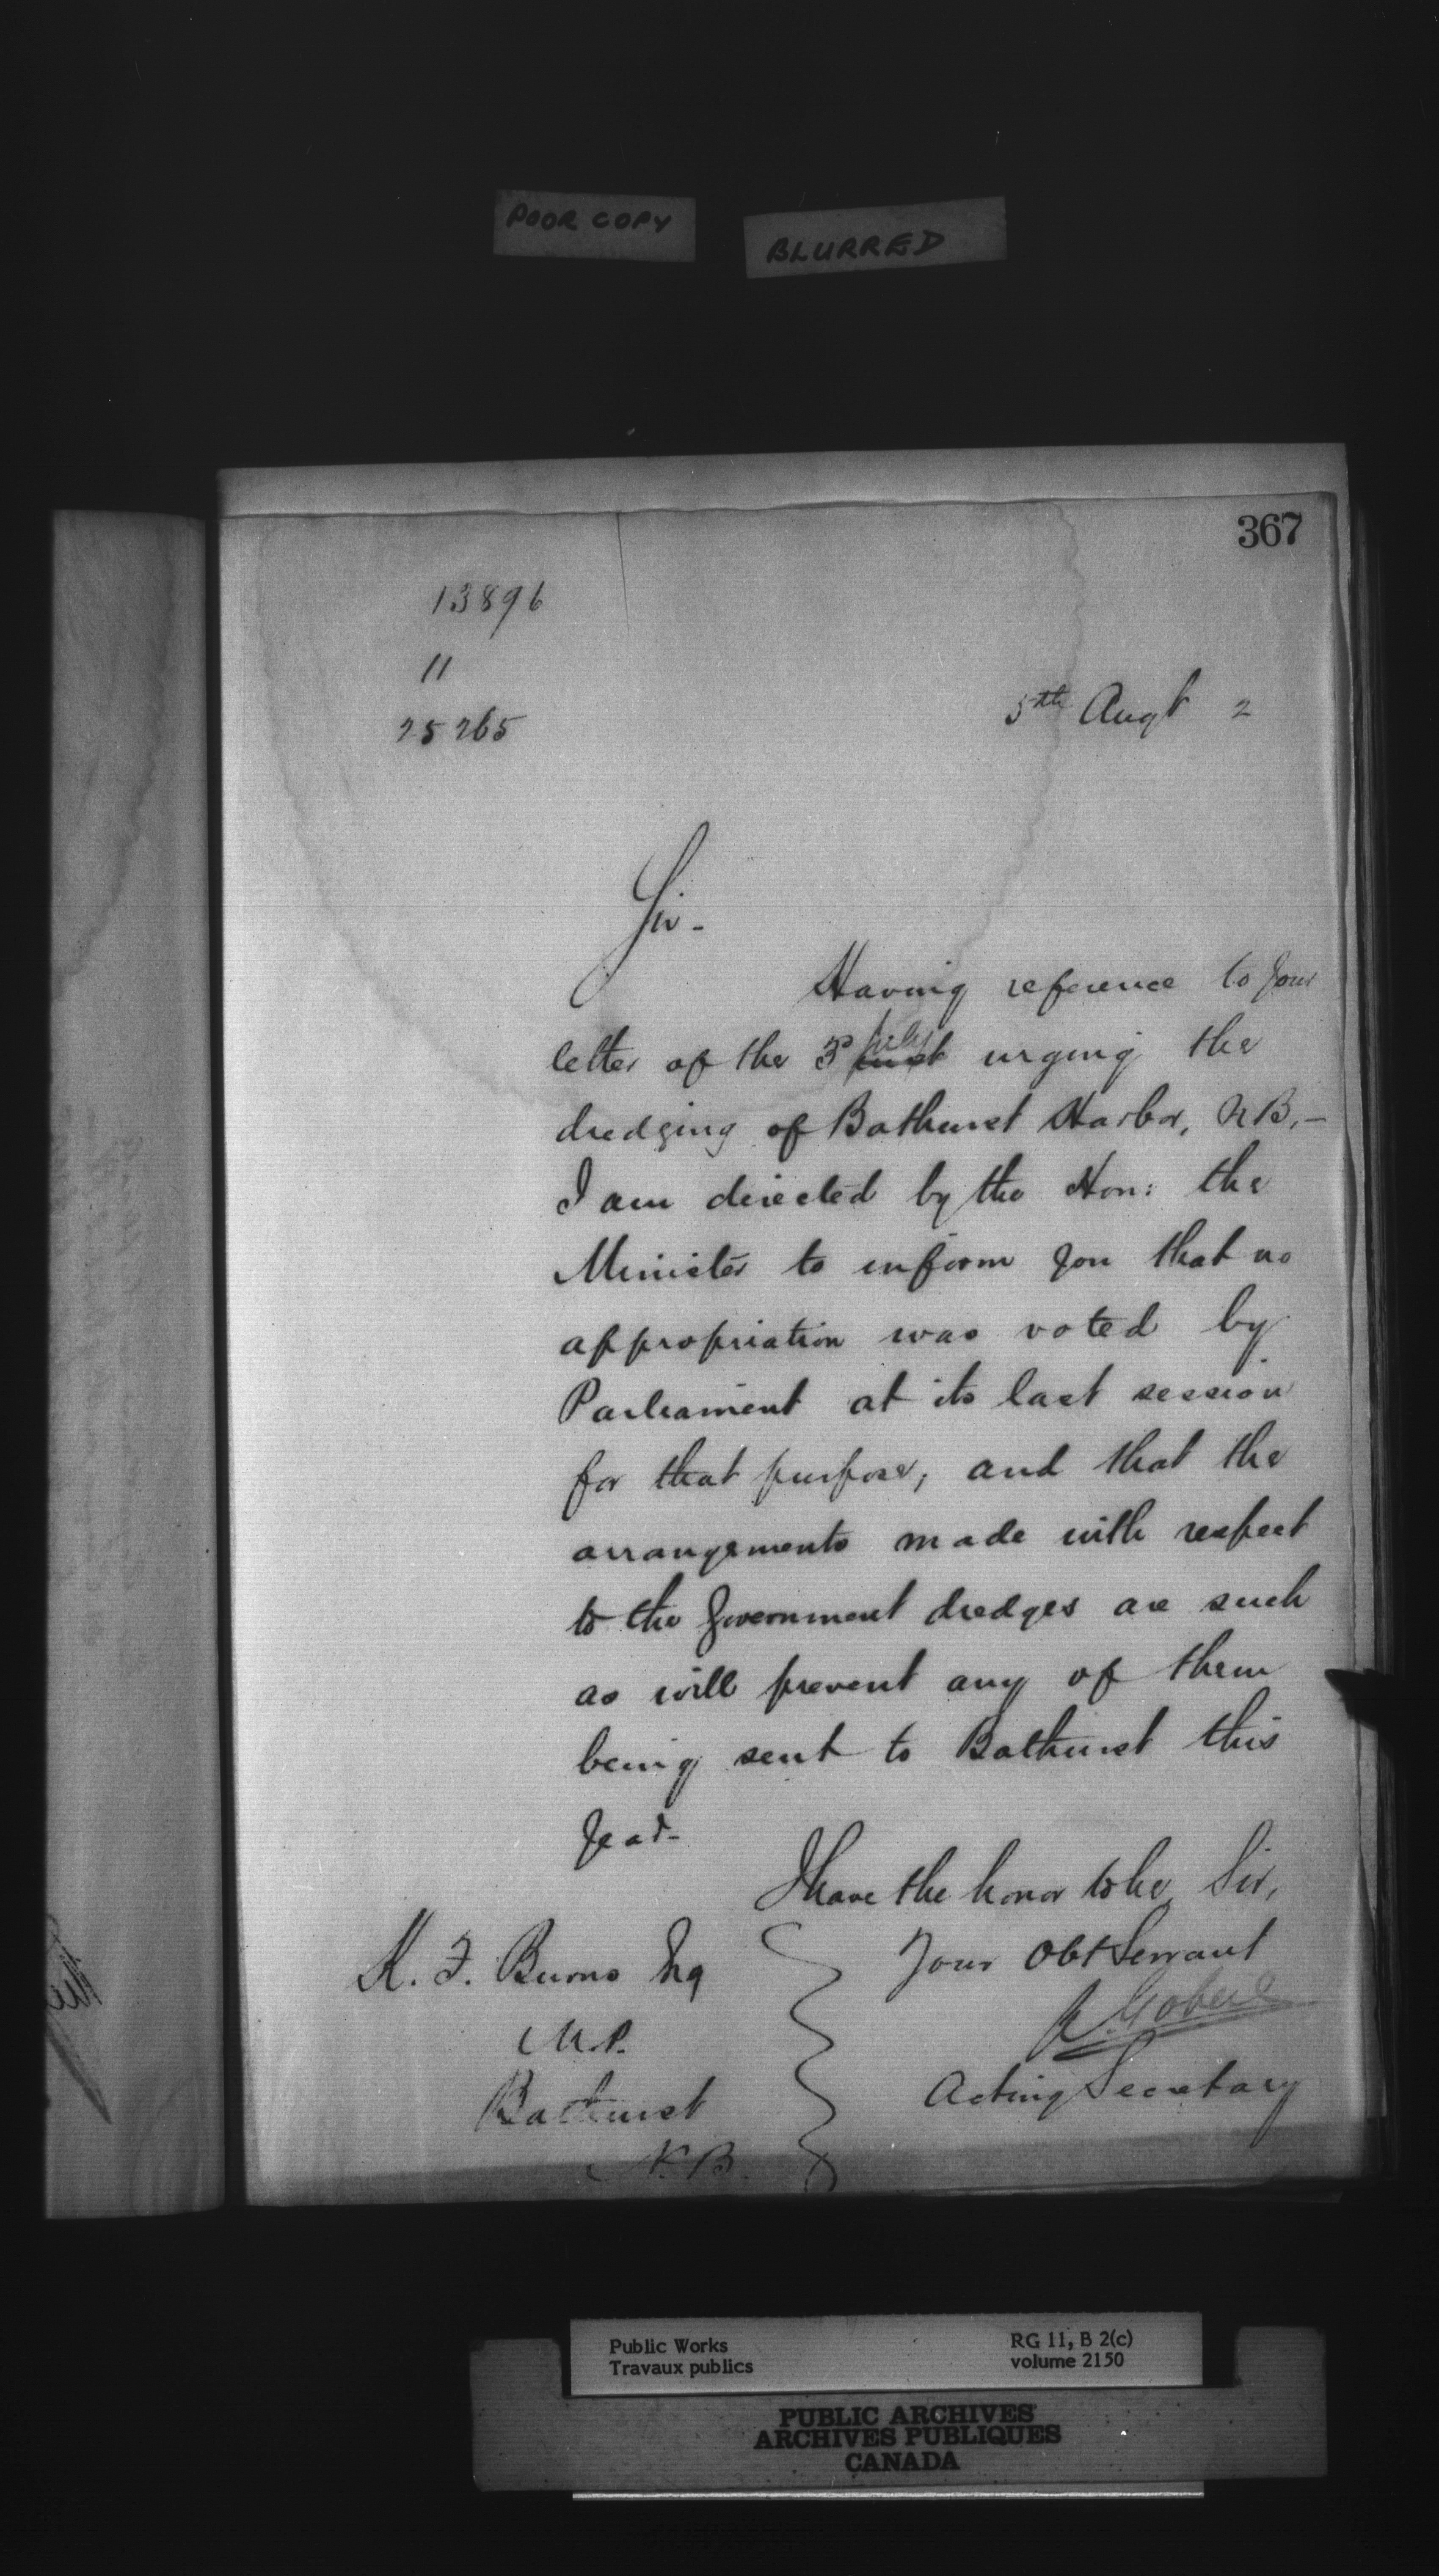 POOR COPY
BLURRED
367
13896
11
25265
5th Augt 2
Sir -
Having reference to your
letter of the 3d July inst urging the
dredging of Bathurst Harbor, N.B, -
I am directed by the Hon: the
Minister to inform you that no
appropriation was voted by
Parliament at its last session
for that purpose, and that the
arrangements made with respect
to the Government dredges are such
as will prevent any of them
being sent to Bathurst this
year -
I have the honor to be, Sir,
Your Obt Servant
A. Gobeil
Acting Secretary
K. F. Burns Esq
M.P.
Bathurst
N.B.
Public Works
Travaux publics
RG 11, B 2(c)
volume 2150
PUBLIC ARCHIVES
ARCHIVES PUBLIQUES
CANADA